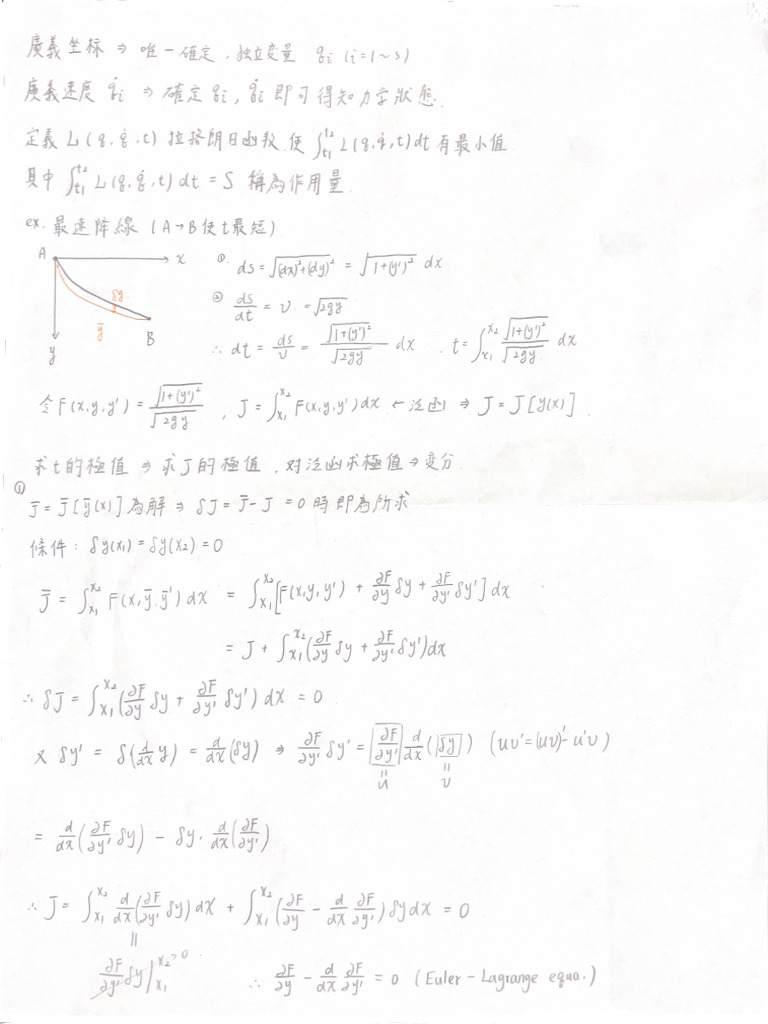 廣義坐标 ⇒ 唯一確定，独立变量 qᵢ (i=1~s)
廣義速度 q̇ᵢ ⇒ 確定qᵢ, q̇ᵢ 即可得知力学狀態.
定義 L(q, q̇, t) 拉格朗日函数, 使 ∫_{t₁}^{t₂} L(q, q̇, t) dt 有最小值
其中 ∫_{t₁}^{t₂} L(q, q̇, t) dt = S 稱為作用量
ex. 最速降線 (A→B 使 t 最短)
A x y B δy ȳ
① ds = √((dx)²+(dy)²) = √(1+(y')²) dx
② ds/dt = v = √(2gy)
∴ dt = ds/v = √(1+(y')²)/√(2gy) dx . t = ∫_{x₁}^{x₂} √(1+(y')²)/√(2gy) dx
令 F(x,y,y') = √(1+(y')²)/√(2gy) , J = ∫_{x₁}^{x₂} F(x,y,y')dx ← 泛函 ⇒ J = J[y(x)] .
求t的極值 ⇒ 求J的極值 , 对泛函求極值 ⇒ 变分.
① J̄ = J̄[ȳ(x)] 為解 ⇒ δJ = J̄ - J = 0 時即為所求
條件: δy(x₁) = δy(x₂) = 0
J̄ = ∫_{x₁}^{x₂} F(x, ȳ, ȳ') dx = ∫_{x₁}^{x₂} [F(x,y,y') + ∂F/∂y δy + ∂F/∂y' δy'] dx
= J + ∫_{x₁}^{x₂} (∂F/∂y δy + ∂F/∂y' δy')dx
∴ δJ = ∫_{x₁}^{x₂} (∂F/∂y δy + ∂F/∂y' δy') dx = 0
又 δy' = δ(d/dx y) = d/dx (δy) ⇒ ∂F/∂y' δy' = ∂F/∂y' d/dx (δy) (uv' = (uv)' - u'v)
= u = v
= d/dx (∂F/∂y' δy) - δy · d/dx (∂F/∂y')
∴ J = ∫_{x₁}^{x₂} d/dx (∂F/∂y' δy) dx + ∫_{x₁}^{x₂} (∂F/∂y - d/dx ∂F/∂y') δy dx = 0
= ∂F/∂y' δy |_{x₁}^{x₂} → 0 ∴ ∂F/∂y - d/dx ∂F/∂y' = 0 (Euler - Lagrange equa.)